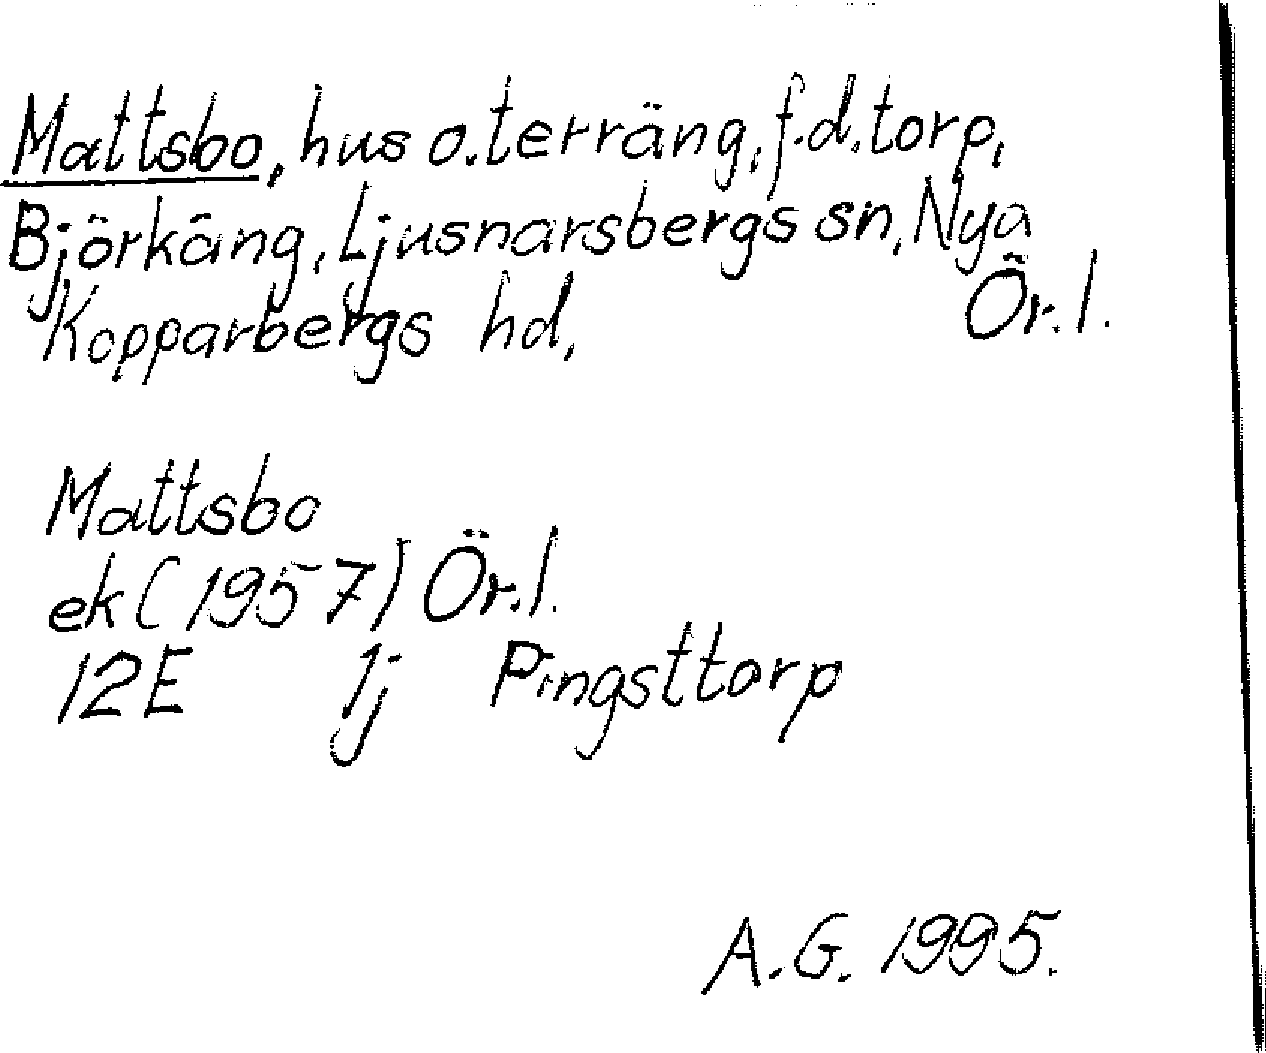 Mattsbo, hus o. terräng, f.d. torp,
Björkäng, Ljusnarsbergs sn, Nya
Kopparbergs hd, Ör. l.
Mattsbo
ek (1957) Ör. l.
12E 1j Pingsttorp
A.G. 1995.